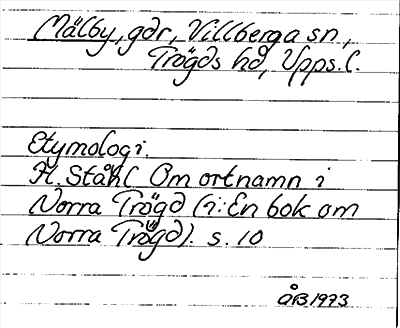 Mälby, gdr, Villberga sn,
Trögds hd, Upps. l.
Etymologi.
H. Ståhl Om ortnamn i
Norra Trögd (i: En bok om
Norra Trögd). s. 10
ÅB 1973